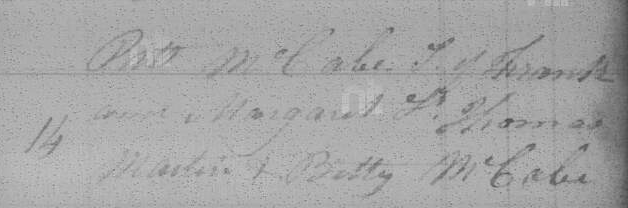 Patt McCabe S. of Frank
and Margaret Sp Thomas
14
Martin & Betty McCabe